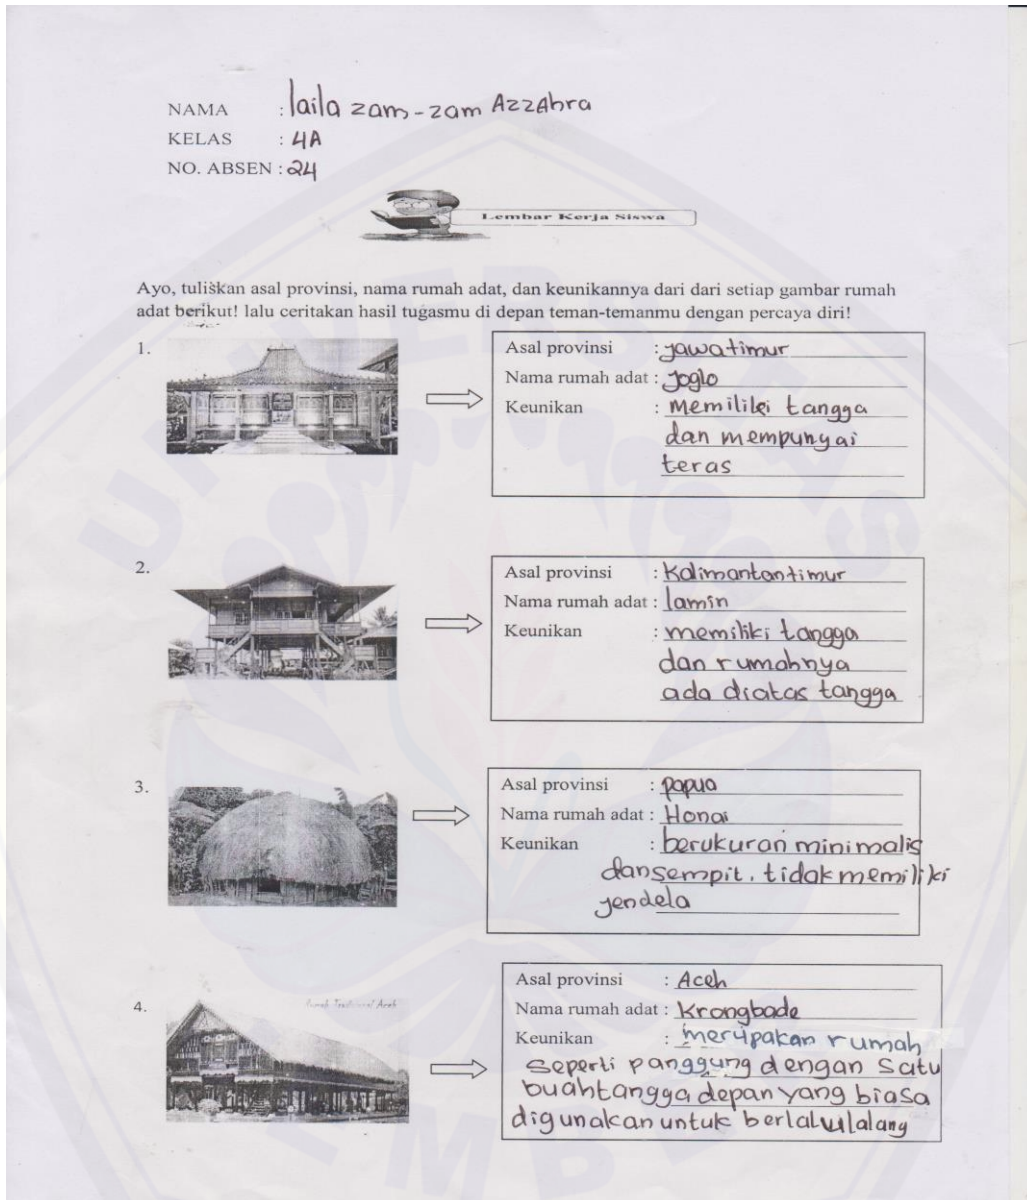 NAMA : laila zam-zam AzzAhra
KELAS : 4A
NO. ABSEN : 24
Lembar Kerja Siswa
Ayo, tuliskan asal provinsi, nama rumah adat, dan keunikannya dari dari setiap gambar rumah
adat berikut! lalu ceritakan hasil tugasmu di depan teman-temanmu dengan percaya diri!
1.
Asal provinsi : jawatimur
Nama rumah adat : Joglo
Keunikan : Memiliki tangga
dan mempunyai
teras
2.
Asal provinsi : Kalimantantimur
Nama rumah adat : lamin
Keunikan : memiliki tangga
dan rumahnya
ada diatas tangga
3.
Asal provinsi : papua
Nama rumah adat : Honai
Keunikan : berukuran minimalis
dansempit. tidak memiliki
jendela
4.
Rumah Tradisional Aceh
Asal provinsi : Aceh
Nama rumah adat : Krongbade
Keunikan : merupakan rumah
seperti panggung dengan satu
buahtangga depan yang biasa
digunakan untuk berlalulalang
UNIVERSITAS
JEMBER